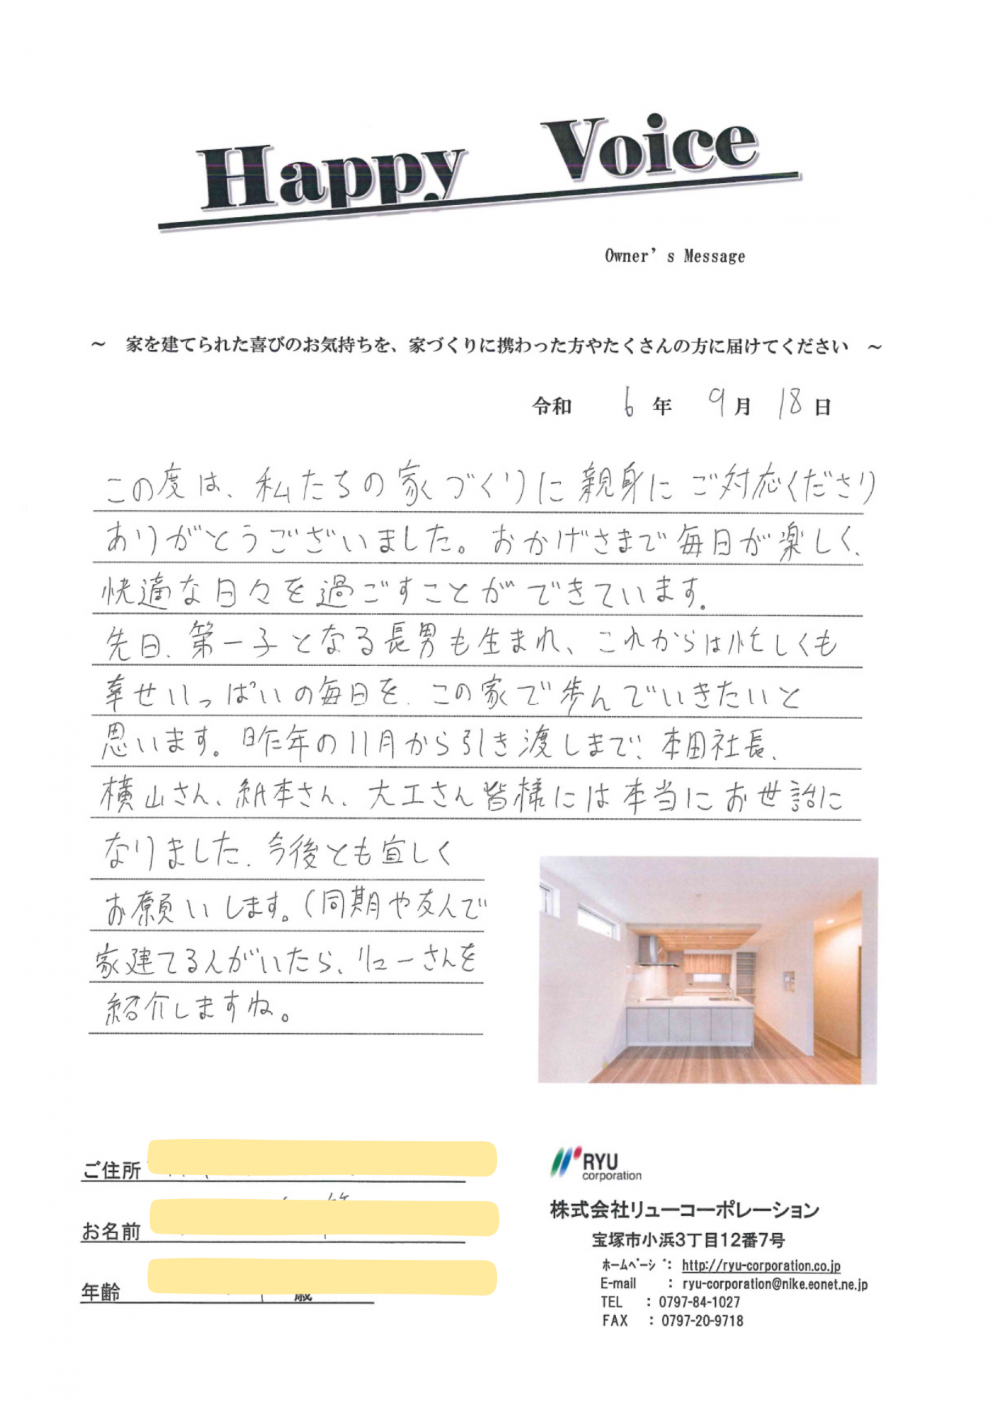 Happy Voice
Owner's Message
～ 家を建てられた喜びのお気持ちを、家づくりに携わった方やたくさんの方に届けてください ～
令和 6 年 9 月 18 日
この度は、私たちの家づくりに親身にご対応くださり
ありがとうございました。おかげさまで毎日が楽しく、
快適な日々を過ごすことができています。
先日、第一子となる長男も生まれ、これからは忙しくも
幸せいっぱいの毎日を、この家で歩んでいきたいと
思います。昨年の11月から引き渡しまで、本田社長、
横山さん、紙本さん、大工さん皆様には本当にお世話に
なりました。今後とも宜しく
お願いします。(同期や友人で
家建てる人がいたら、リューさんを
紹介しますね。
ご住所
お名前
年齢 歳
RYU
corporation
株式会社リューコーポレーション
宝塚市小浜3丁目12番7号
ﾎｰﾑﾍﾟｰｼﾞ: http://ryu-corporation.co.jp
E-mail : ryu-corporation@nike.eonet.ne.jp
TEL : 0797-84-1027
FAX : 0797-20-9718